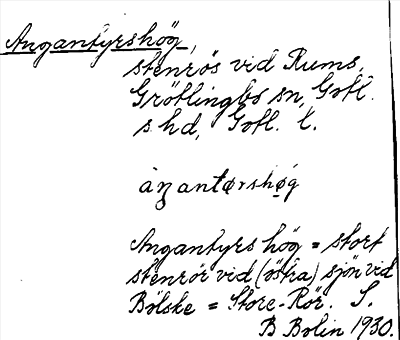 Angantyrshög,
stenrös vid Rums,
Grötlingbo sn, Gotl.
s. hd, Gotl. l.
àŋantørshǫ́g
Angantyrs hög = stort
stenrör vid (östra) sjön vid
Bölske = Store-Rör. S.
B Bolin 1930.